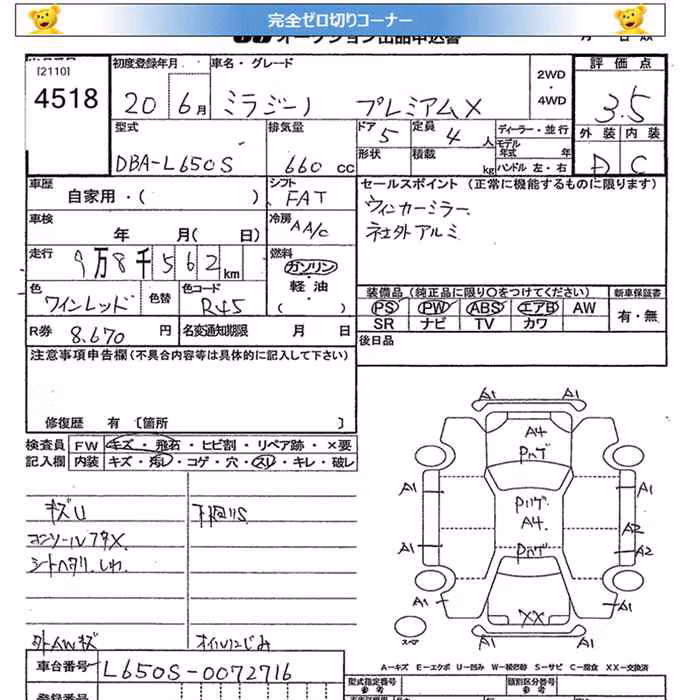 完全ゼロ切りコーナー
オークション出品申込書
[2110]
4518
初度登録年月
20 6月
車名・グレード
ミラジーノ プレミアムX
2WD
・
4WD
評価点
3.5
外装 内装
D C
型式
DBA-L650S
排気量
660 cc
ドア 5
定員 4 人
形状
積載 kg
ディーラー・並行
モデル年式 年
ハンドル 左・右
車歴
自家用・( )
シフト
FAT
セールスポイント (正常に機能するものに限ります)
ウィンカーミラー
社外アルミ
車検
年 月( 日)
冷房
AA/C
走行
9万8千562km
燃料
ガソリン
・
軽油
・
( )
色
ワインレッド
色替
色コード
R45
装備品(純正品に限り○をつけてください)
PS PW ABS エアB AW
SR ナビ TV カワ
新車保証書
有・無
R券 8.670 円
名変通知期限 月 日
後日品
注意事項申告欄(不具合内容等は具体的に記入して下さい)
修復歴 有 [箇所 ]
検査員記入欄
FW キズ・飛石・ヒビ割・リペア跡・×要
内装 キズ・汚レ・コゲ・穴・スレ・キレ・破レ
キズU
下回りS
コンソールフタX
シートヘタリ.しわ
タイヤAWキズ
オイルにじみ
A1 A1
A4
Pハゲ
A1 A1
Pハゲ
A4 A2
A1 Pハゲ A2
A1 XX A1
スペア
A1 A1
A=キズ E=エクボ U=凹み W=補修跡 S=サビ C=腐食 XX=交換済
車台番号 L650S-0072716
型式指定番号
参考
類別区分番号
参考
登録番号